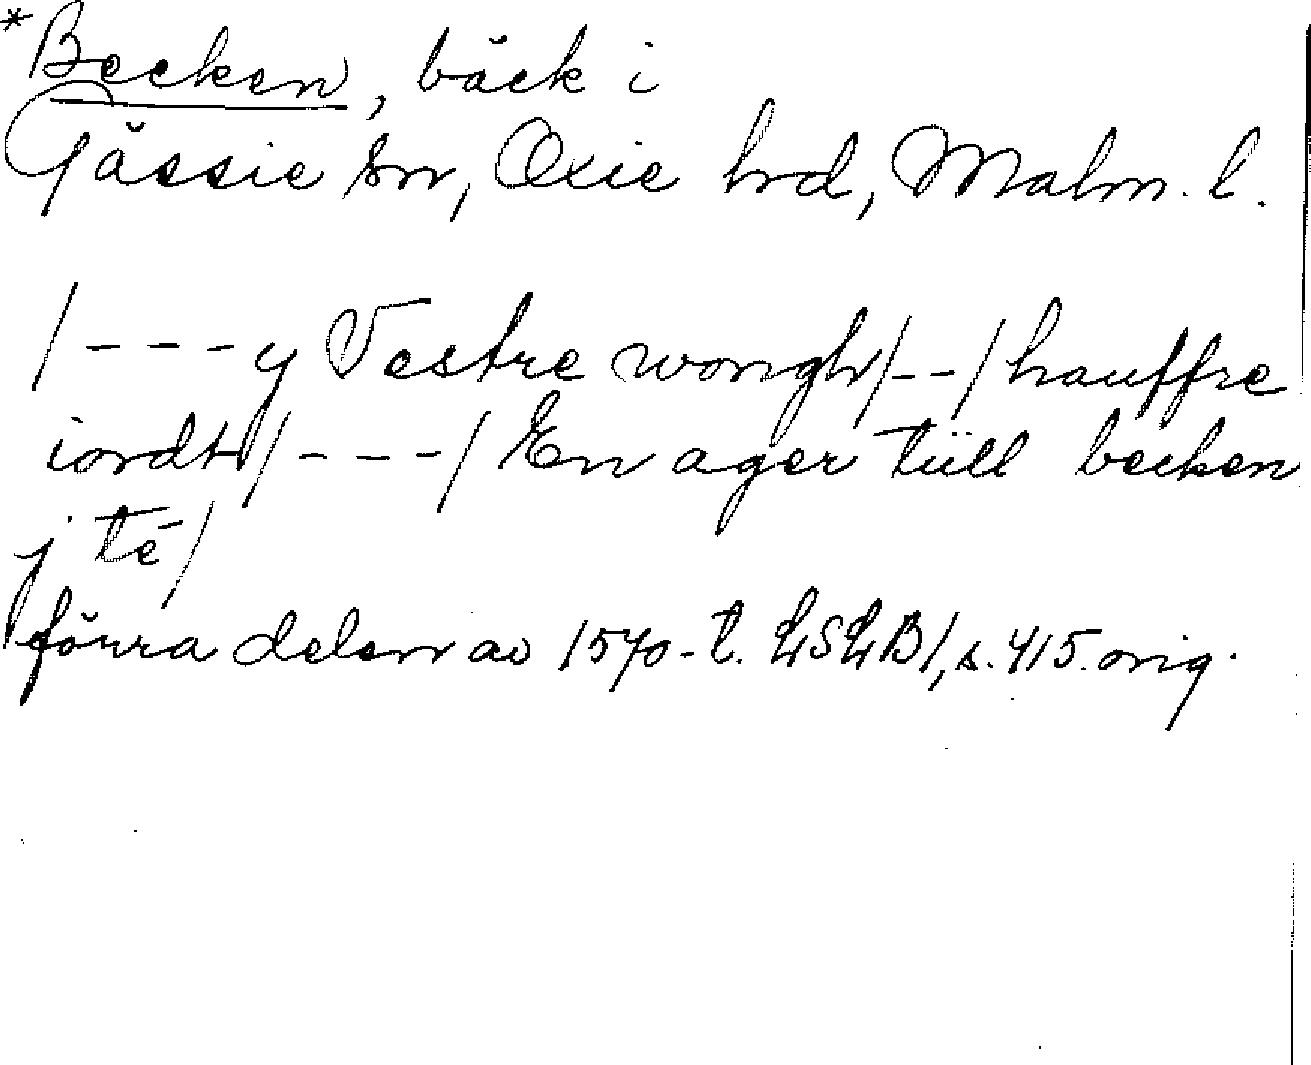 *Becken, bäck i
Gässie sn, Oxie hrd, Malm. l.
/---y Vestre wongh/--/hauffre
iordt/---/En ager tüll becken
j té/
förra delen av 1570-t. LSLB1, s. 415. orig.